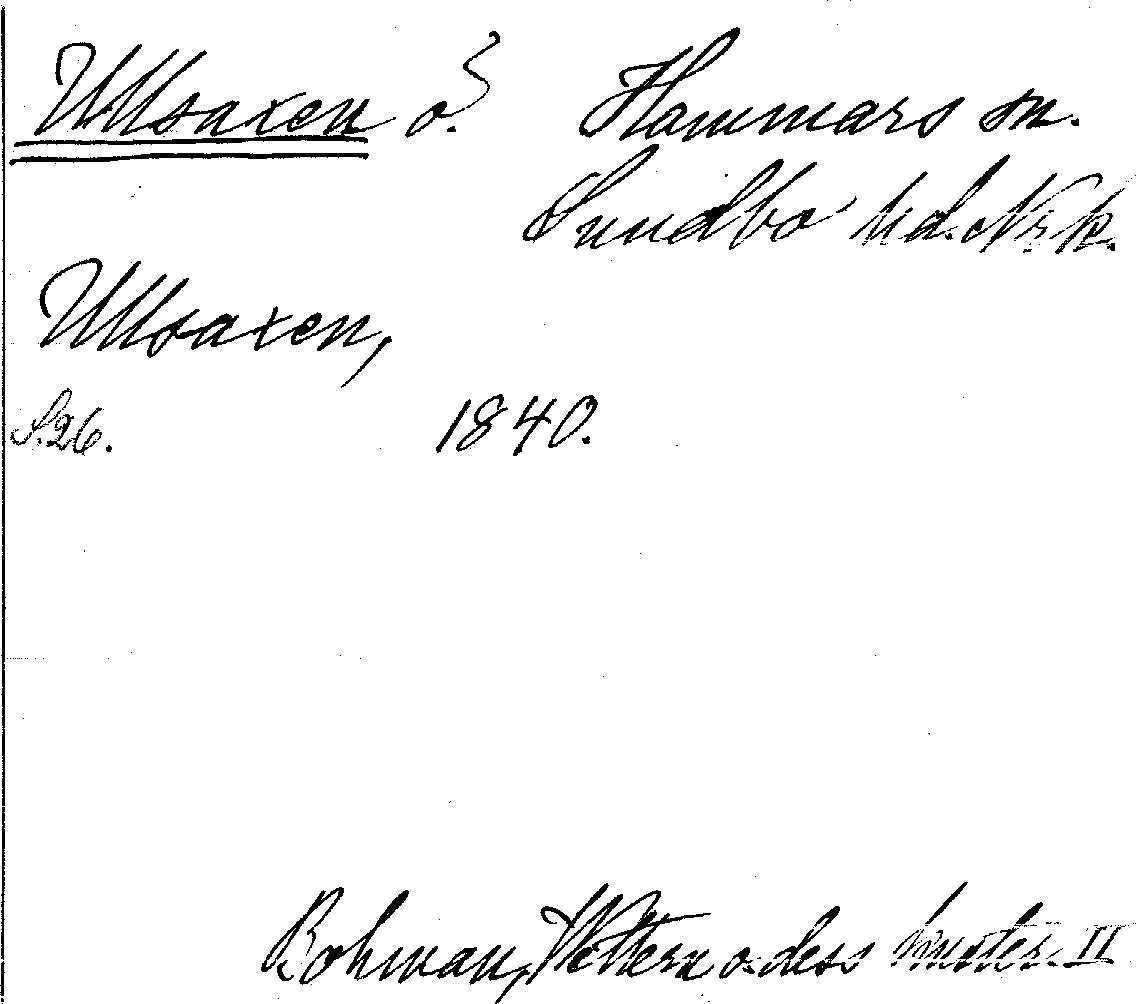 Ullsaxen ö. Hammars sn.
Sundbo hd. Nrk.
Ullsaxen,
S. 26. 1840.
Bohman, Wettern o. dess kuster. II